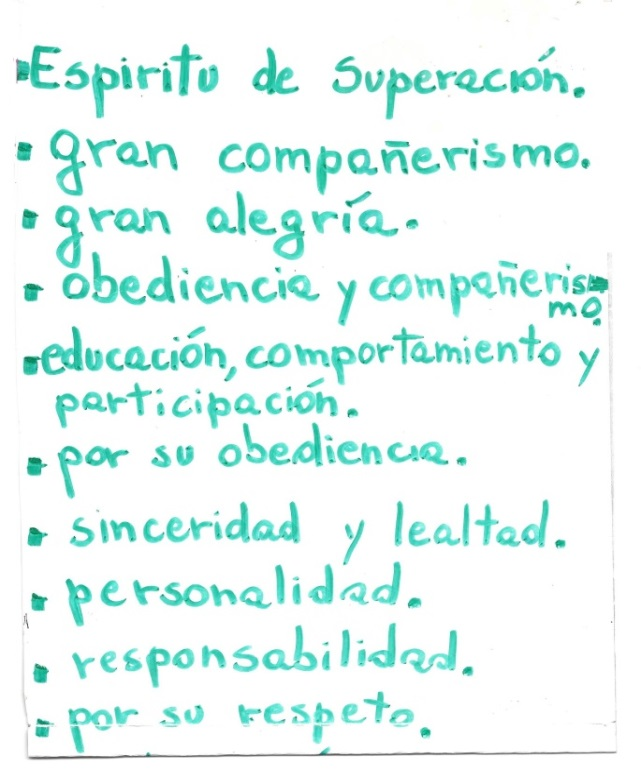 ▪Espiritu de Superación.
▪ gran compañerismo.
▪ gran alegría.
▪ obediencia y compañeris-
mo.
▪educación, comportamiento y
participación.
▪ por su obediencia.
▪ sinceridad y lealtad.
▪ personalidad.
▪ responsabilidad.
▪ por su respeto.